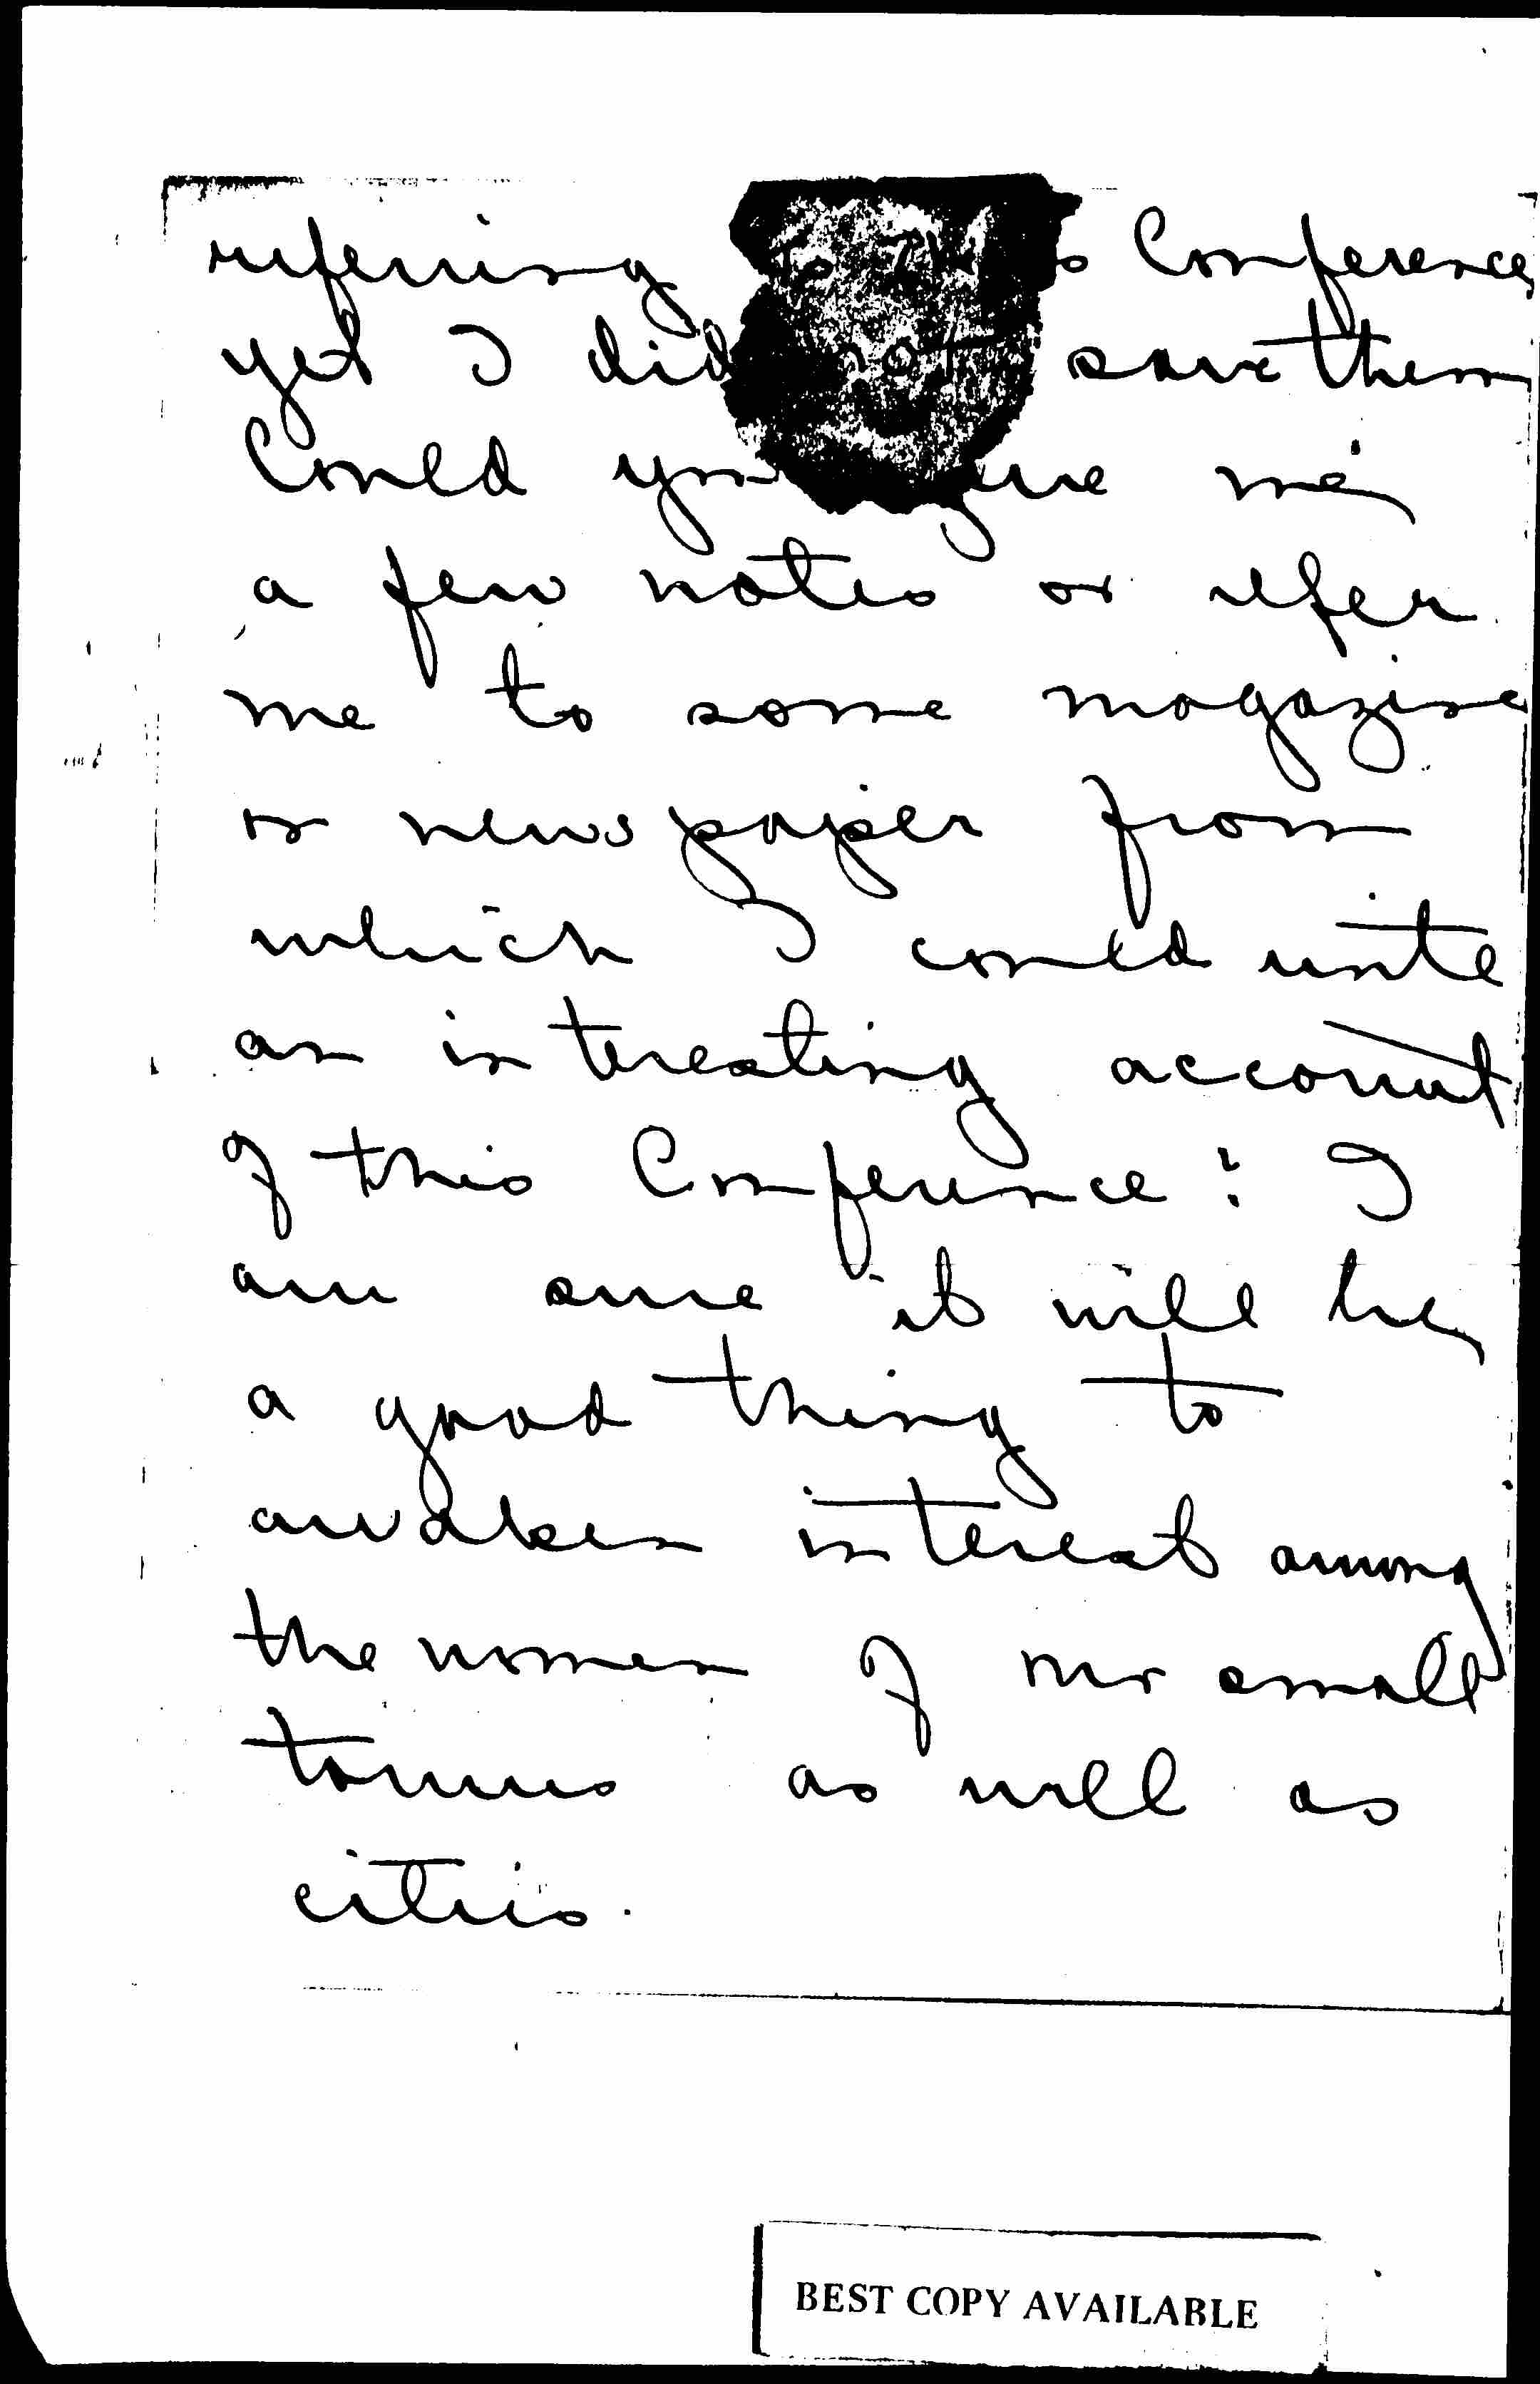 referring to this Conference,
yet I did not save them
Could you give me
a few notes or refer
me to some magazine
or newspaper from
which I could write
an interesting account
of this Conference? I
am sure it will be
a good thing to
awaken interest among
the women of our small
towns as well as
cities.
BEST COPY AVAILABLE